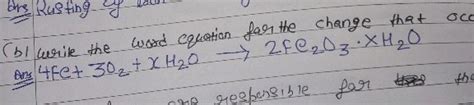 Ans Rusting of
(b) write the word equation for the change that occ
Ans 4Fe + 3O₂ + xH₂O → 2Fe₂O₃ · XH₂O
are responsible for the